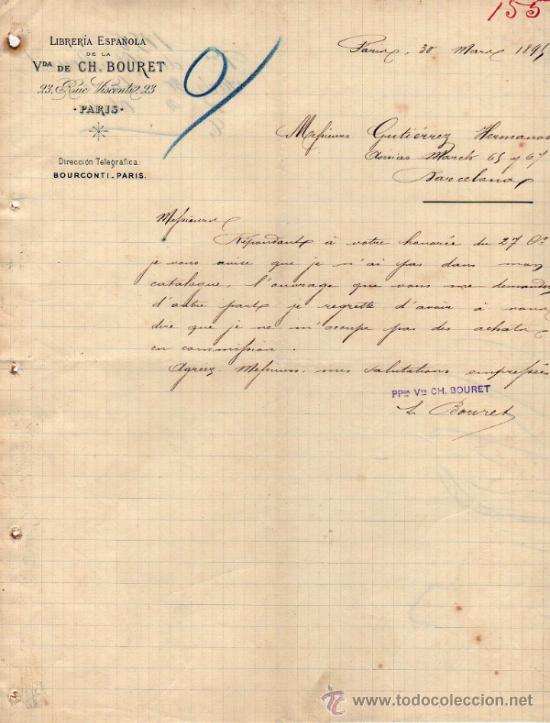 155
LIBRERÍA ESPAÑOLA
DE LA
VDA DE CH. BOURET
23, Rue Visconti, 23
- PARIS -
Dirección Telegráfica:
BOURCONTI-PARIS.
9
Paris, 30 Mars 189
Messieurs Gutiérrez Hermanos
Ausias March 65 y 67
Barcelona
Messieurs
Répondant à votre honorée du 27 Ct
je vous avise que je n'ai pas dans mon
catalogue, l'ouvrage que vous me demandez
d'autre part je regrette d'avoir à vous
dire que je ne m'occupe pas des achats
en commission.
Agréez Messieurs, mes salutations empressées
PPon Ve CH. BOURET
Bouret
www.todocoleccion.net